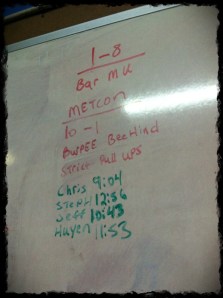 1-8
Bar MU
METCON
10-1
BURPEE Bearhind
Strict Pull UPS
Chris 9:04
STEPH 12:56
Jeff 10:43
Huyen 11:53